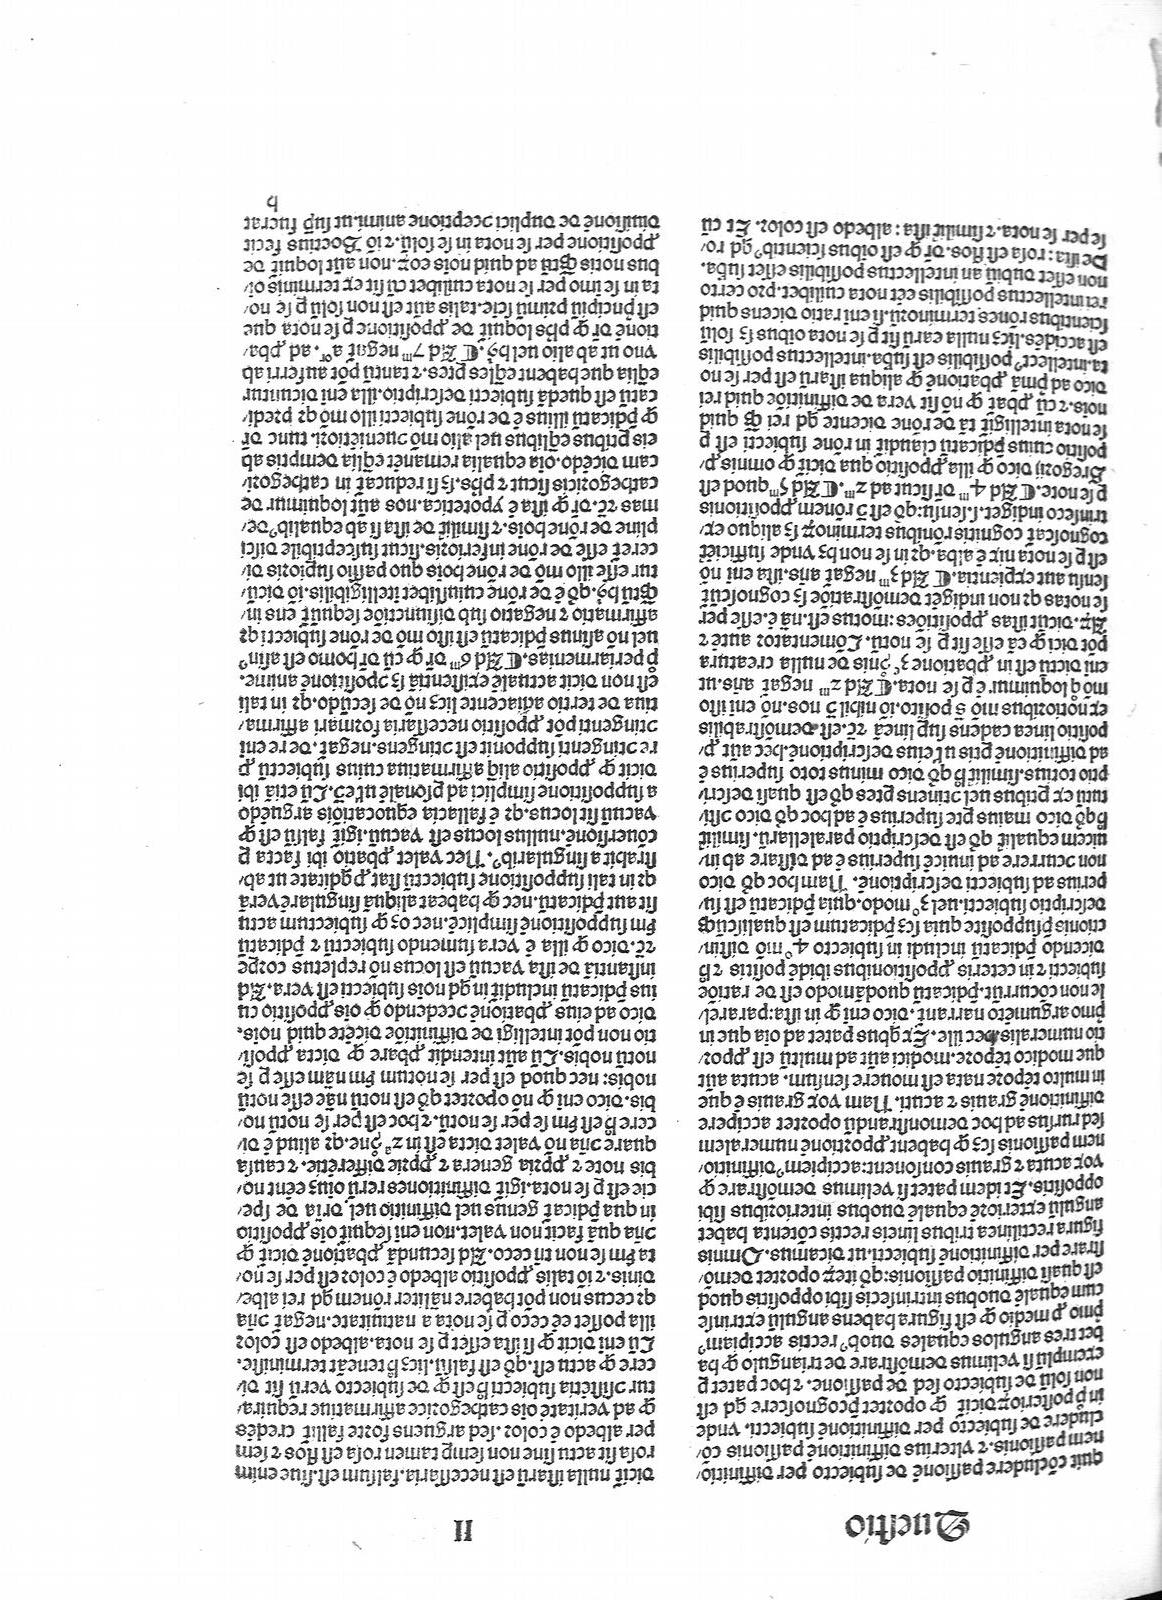 Questio
II
quit cōcludere passionē de subiecto per diffinitio/
nem passionis. ⁊ vlterius diffinitionē passionis cō/
cludere de subiecto per diffinitionē subiecti. vnde
in p̄posterioꝝ dicit ꝙ oportet p̄cognoscere qd est
non solū de subiecto sed de passione. ⁊ hoc patet p
exemplū si velimus demōstrare de triangulo ꝙ ha
bet tres angulos equales duobꝰ rectis accipiamꝰ
pͥmo p medio ꝙ est figura habens angulū extrinse
cum equalē duobus intrinsecis sibi oppositis quod
est quasi diffinitio passionis: qd̄ iteꝝ oportet demō/
strare per diffinitionē subiecti. ut dicamus. Omnis
figura rectilinea tribus lineis rectis cōtenta habet
angulū exteriorē equalē duobus interioribus sibi
oppositis. Et idem patet si velimus demōstrare ꝙ
vox acuta ⁊ grauis consonent: accipiemꝰ diffinitio/
nem passionis scꝫ ꝙ habent p̱portionē numeralem
sed rursus ad hoc demonstrandū oportet accipere
diffinitionē grauis ⁊ acuti. Nam vox grauis ē que
in multo tēpore nata est mouere sensum. acuta aūt
que modico tēpore. modici aūt ad multū est p̱por
tio numeralis hec ille. Ex qbus patet ad oīa que in
pͥmo argumēto narrant. dico eni ꝙ in ista: pararel/
le non cōcurrūt. p̄dicatū quodāmodo est de ratiōe
subiecti ⁊ in ceteris p̱positionibus ibidē positis. ⁊ ꝫ
dicendo p̄dicatū includi in subiecto 4º mō distin/
ctionis p̄supposite quia scꝫ p̄dicatum est qualitercūqꝫ
descriptio subiecti. uel 3º modo. quia p̄dicatū est su/
perius ad subiecti descriptionē. Nam hoc qd̄ dico
non ɔcurrere ad inuicē superius ē ad distare ab in/
uicem equalit̄ qd̄ est descriptio parallelarū. similit̄
hoc qd̄ dico maius p̄te superius ē ad hoc qd̄ dico ɔsti/
tutū ex p̄tibus uel ɔtinens p̄tes qd̄ est quasi descri/
ptio totius. similit̄ hoc qd̄ dico minus toto superius ē
ad diffinitionē p̄tis ut eius descriptionē. hec aūt p̱/
positio linea cadens sup̱ lineā ⁊c̄. est demōstrabilis
ex notioribus mō s̄ posito. iō nihil ɔ̄ nos. nō eni isto
mō loquimur ē p se nota. ¶ Ad 2ᵐ negat̄ an̄s. ut
eni dictū est in p̱batione 3ᵉ ɔ̄nis de nulla creatura
pōt dici ꝙ eā esse sit p se notū. Cōmentator aūt ⁊
Ar. dicūt istas p̱positiōes: motus est. nā ē. esse per
se notas qꝛ non indigēt demōstratiōe sꝫ cognoscūt̄
sensu aut experientia. ¶ Ad 3ᵐ negat̄ an̄s. ista eni nō
est p se nota nix ē alba. qꝛ in se non hꝫ vnde sufficiēt̄
cognoscat̄ cognitis rōnibus terminoꝝ sꝫ aliquo ex/
trinseco indiget. s. sensu: qd̄ est ɔ̄ rōnem p̱positionis
p se note. ¶ Ad 4ᵐ dr̄ sicut ad 2ᵐ. ¶ Ad 5ᵐ quod est
Gregorij dico ꝙ illa p̱positio qua dicit ꝙ omnis p̱/
positio cuius p̄dicatū claudit̄ in rōne subiecti est p
se nota intelligit̄ tā de rōne dicente qd rei ꝗ̄ quid
nois. ⁊ cū p̱bat ꝙ nō sit vera de diffinitiōe quid rei
dico ad pͥmā p̱bationē ꝙ aliqua istarū est per se no
ta. intellectꝰ possibilis est sub̄a. intellectus possibilis
est accidēs. licꝫ nulla earū sit p se nota oībus sꝫ solū
scientibus rōnes terminoꝝ. si eni ratio dicens quid
rei intellectus possibilis eēt nota cuilibet. pro certo
non esset dubiū an intellectus possibilis esset sub̄a.
De ista: rosa est flos. dr̄ ꝙ est oībus scientibꝰ qd ro/
se per se nota. ⁊ similit̄ ista: albedo est color. Et cū
dicit̄ nulla istarū est necessaria. falsum est. siue enim
rosa sit actu siue non semp̱ tamen rosa est flos ⁊ sem
per albedo ē color. sed arguens forte fallit̄ credēs
ꝙ ad veritatē oīs cathegorice affirmatiue requira/
tur ɔsistētia subiecti hꝫ est ꝙ de subiecto verū sit di
cere ꝙ actu est. qd̄ est falsū. licꝫ hꝫ teneāt terministe.
Cū eni dicit ꝙ si ista esset p se nota. albedo est color
illa posset eē ceco p se nota a natiuitate. negat̄ ɔ̄na
qꝛ cecus non pōt habere nāliter rōnem qd rei albe/
dinis. ⁊ iō talis p̱positio albedo ē color est per se no/
ta fm se non tn̄ ceco. Ad secundā p̱bationē dicit̄ ꝙ
ɔ̄na quā facit non valet. non eni sequit̄ oīs p̱positio
in qua p̄dicat̄ genus uel diffinitio uel dr̄ia de spe/
cie est p se nota. igit̄ diffinitiones rerū oīuꝫ eēnt no/
bis note ⁊ p̱pria genera ⁊ p̱prie differētie. ⁊ causa
quare ɔ̄na nō valet dicta est in 2ᵃ ɔ̄ne. qꝛ aliud ē di
cere hꝫ est fm se per se notū. ⁊ hoc est per se notū no/
bis. Dico eni ꝙ nō oportet qd̄ est notū nāe esse notū
nobis: nec quod est per se notum fm nām esse p se
notū nobis. Cū aūt intendit p̱bare ꝙ dicta p̱posi/
tio non pōt intelligi de diffinitiōe dicēte quid nois.
dico ad eius p̱bationē ɔcedendo ꝙ oīs p̱positio cu
ius p̄dicatū includit̄ in qd nois subiecti est vera. Ad
instantiā de ista vacuū est locus nō repletus corpe
⁊c̄. dico ꝙ illa ē vera sumendo subiectū ⁊ p̄dicatū
fm suppositionē simplicē. nec oꝫ ꝙ subiectum actu
sit aut p̄dicatū. nec ꝙ habeat aliquā singularē verā
qꝛ in tali suppositione subiectū stat p̱ p̄dicare ut ab/
strahit a singularibꝰ. Nec valet p̱batio ibi facta p
cōuersionē. nullus locus est vacuū. igit̄ falsū est ꝙ
vacuū sit locus. qꝛ ē fallacia equocatiōis arguēdo
a suppositione simplici ad p̱sonalē ut eꝯ. Cū etiā ibi
dicit̄ ꝙ p̱positio aliqͣ affirmatiua cuius subiectū p
re ɔtingenti supponit est ɔtingens. negat̄. de re eni
ɔtingenti pōt p̱positio necessaria formari affirma/
tiua de tertio adiacente licꝫ nō de secūdo. qꝛ in tali
est non dicit actualē existētiā sꝫ ɔpositionē anime.
p periarmenias. ¶ Ad 6ᵐ dr̄ ꝙ cū dr̄ homo est asinꝰ
uel nō asinus p̄dicatū est isto mō de rōne subiecti qꝛ
affirmatio ⁊ negatio sub disiunctiōe sequūt̄ ens in/
ꝗ̄tū hꝰ. qd̄ ē de rōne cuiuslibet itelligibilis. iō dicū/
tur esse illo mō de rōne hois quo passio suꝑioris di/
ceret̄ esse de rōne inferioris. sicut susceptibile disci
pline de rōne hois. ⁊ similit̄ de ista si ab equalibꝰ de/
mas ⁊c̄. dr̄ ꝙ ista ē ypotetica. nos aūt loquimur de
cathegoricis sicut ⁊ ph̄s. sꝫ si reducat̄ in cathegori
cam dicēdo. oīa equalia remanēt eq̄lia demptis ab
eis p̄tibus eq̄libus uel alio mō ɔuenientiori. tunc dr̄
ꝙ p̄dicatū illius ē de rōne subiecti illo mō qꝛ p̄redi/
catū est quedā subiecti descriptio. illa eni dicuntur
eq̄lia que habent eq̄les p̄tes. ⁊ tantū pōt auferri ab
vno ut ab alio uel hꝰ. ¶ Ad 7ᵐ negat̄ aⁿˢ. ad p̱ba/
tionē dr̄ ꝙ ph̄s loquit̄ de p̱positione p se nota que
est pͥncipiū pͥmū scīe. talis aūt est non solū p se no/
ta in se imo per se nota cuilibet cū sit ex terminis oī/
bus notis ꝗ̄tū ad quid nois eoꝝ. non aūt loquit̄ de
p̱positione per se nota in se solū. ⁊ iō Boetius fecit
diuisionē de duplici ɔceptione animi. ut sup̱ fuerat
b